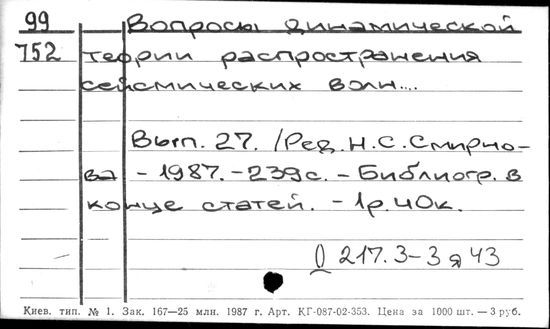 99 Вопросы динамической
752 теории распространения
сейсмических волн....
Вып. 27. /Ред. Н.С.Смирно-
ва - 1987. - 239с. - Библиогр. в
конце статей. - 1р.40к.
217.3-3 я 43
Киев. тип. № 1. Зак. 167—25 млн. 1987 г. Арт. КГ-087-02-353. Цена за 1000 шт. — 3 руб.